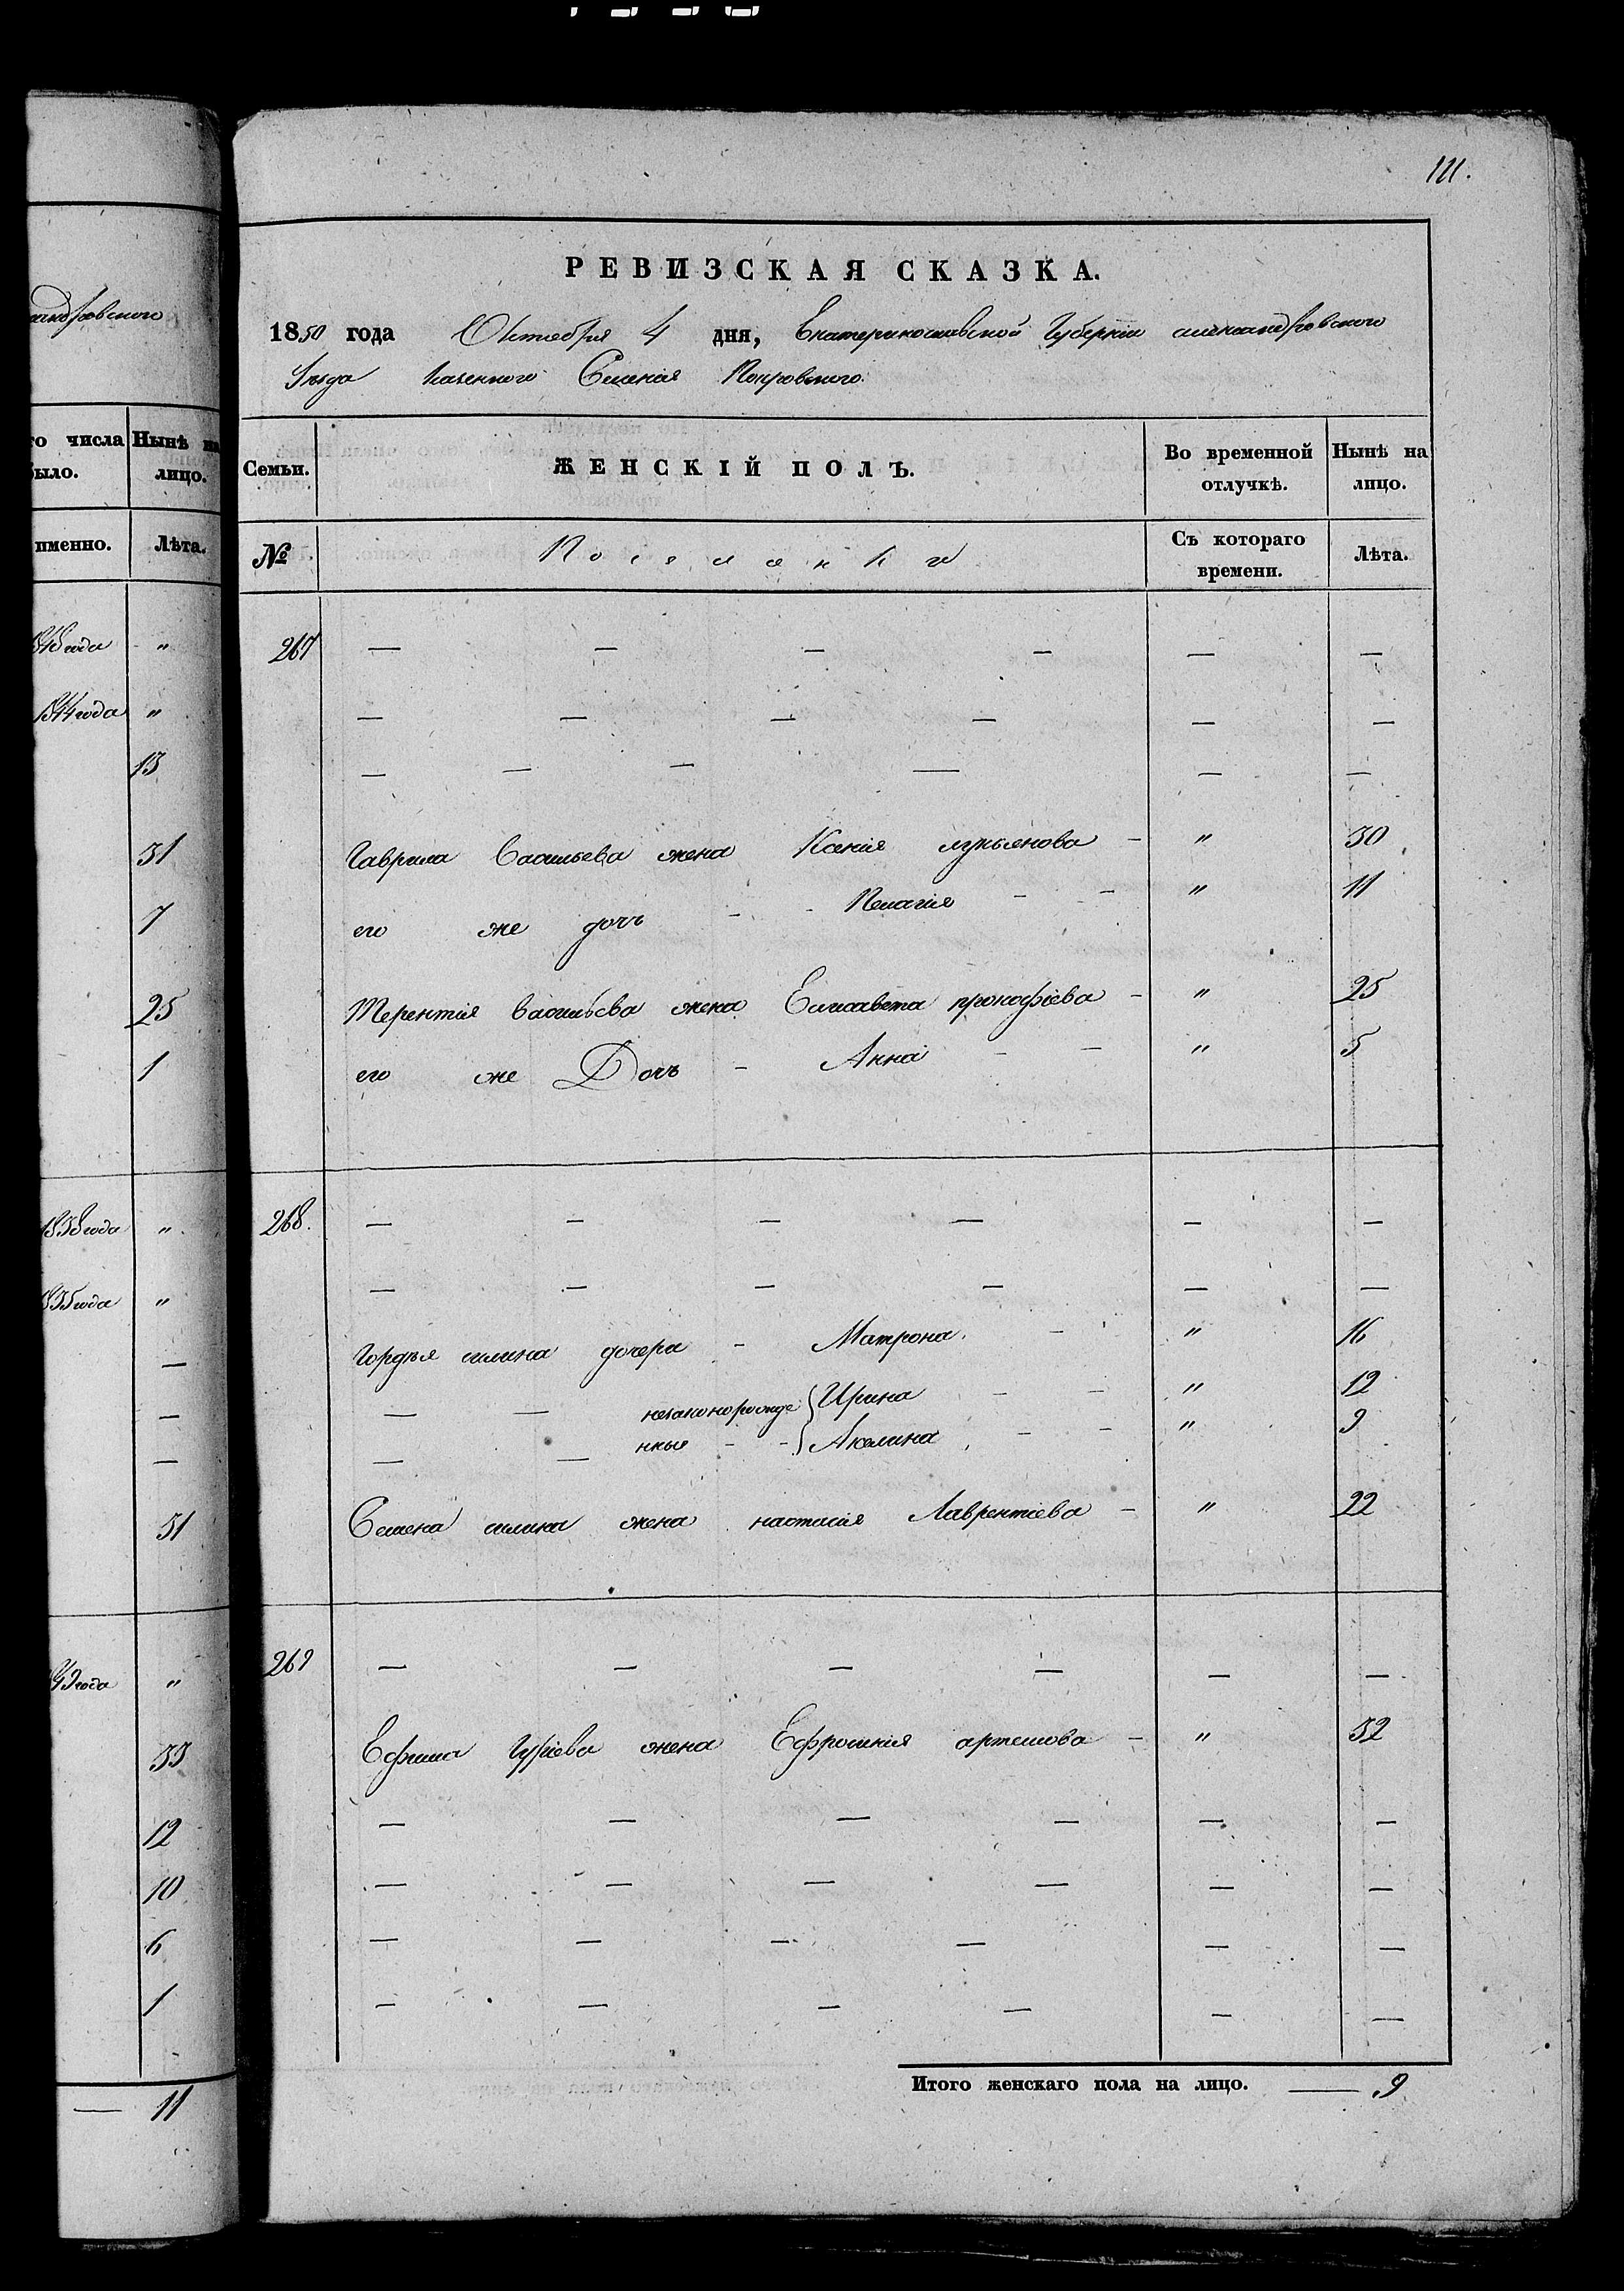 111.
андровского
го числа Нынѣ на
было. лицо.
именно. Лѣта.
1848 года "
1844 года "
13
31
7
25
1
1838 года "
1835 года "
—
—
—
31
1849 года "
33
12
10
6
1
— 11
РЕВИЗСКАЯ СКАЗКА.
1850 года Октября 4 дня, Екатеринославской Губерніи александровского
Уѣзда казенного Селенія Покровского.
Семьи. ЖЕНСКІЙ ПОЛЪ. Во временной отлучкѣ. Нынѣ на лицо.
№ Поселянки Съ котораго времени. Лѣта.
267 — — — — — —
— — — — — —
— — — — — —
Гаврила Васильева жена Ксенія лукьянова — " 30
его же дочь - - Пелагия - - " 11
Терентія васильева жена Елисавета прокофіева — " 25
его же Дочь - Анна - - " 5
268. — — — — — —
— — — — — —
Гордѣя силина дочери - Матрона - " 16
— — незаконорожде Ирина - - " 12
— — нные - - Акилина - - " 9
Семена силина жена настасія Лаврентіева — " 22
269 — — — — — —
Ефима Гуріева жена Ефросинія артемова — " 32
— — — — — —
— — — — — —
— — — — — —
— — — — — —
Итого женскаго пола на лицо. — 9